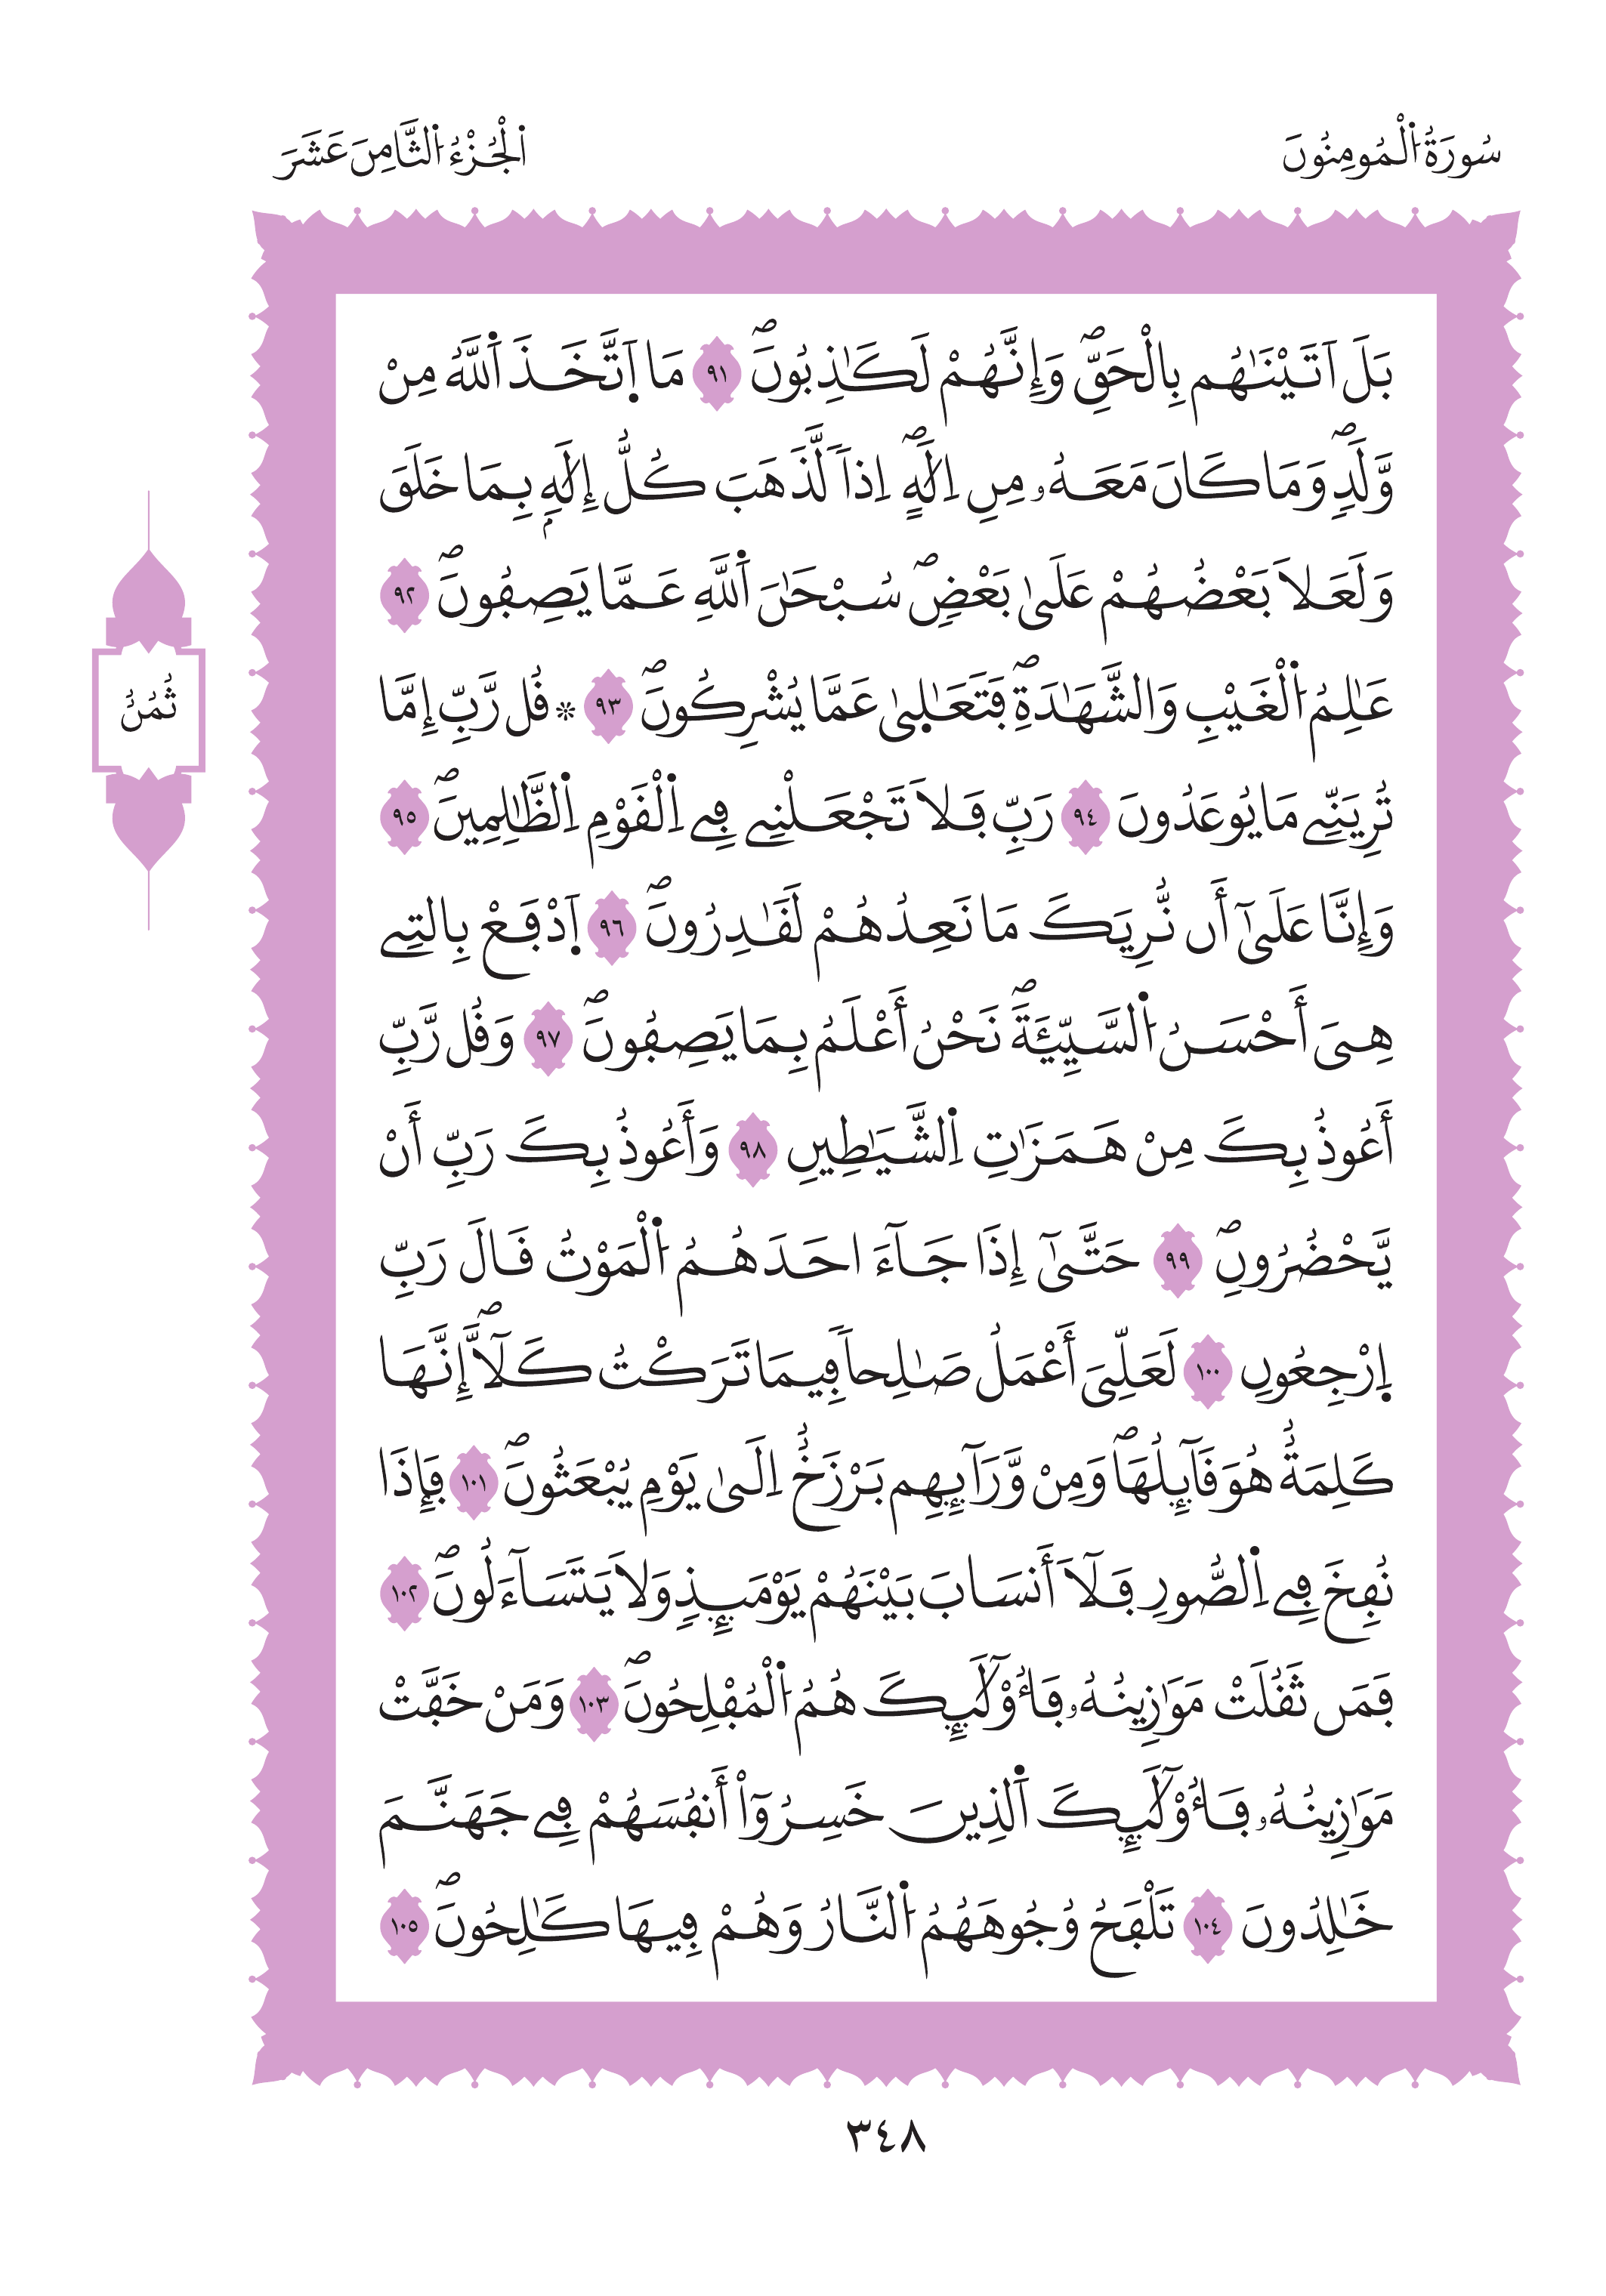 سُورَةُ اُ۬لْمُومِنُونَ
اَ۬لْجُزْءُ اُ۬لثَّامِنَ عَشَرَ
بَلَ اٰتَيْنَٰهُم بِالْحَقِّۖ وَإِنَّهُمْ لَكَٰذِبُونَۖ ٩١ مَا اَ۪تَّخَذَ اَ۬للَّهُ مِنْ
وَّلَدٖۖ وَمَا كَانَ مَعَهُۥ مِنِ اِلَٰهٍۖ اِذاٗ لَّذَهَبَ كُلُّ إِلَٰهِۢ بِمَا خَلَقَ
وَلَعَلَا بَعْضُهُمْ عَلَىٰ بَعْضٖۖ سُبْحَٰنَ اَ۬للَّهِ عَمَّا يَصِفُونَۖ ٩٢
عَٰلِمُ اُ۬لْغَيْبِ وَالشَّهَٰدَةِۖ فَتَعَٰل۪ىٰ عَمَّا يُشْرِكُونَۖ ٩٣ * قُل رَّبِّ إِمَّا
تُرِيَنِّے مَا يُوعَدُونَ ٩٤ رَبِّ فَلَا تَجْعَلْنِے فِے اِ۬لْقَوْمِ اِ۬لظَّٰلِمِينَۖ ٩٥
وَإِنَّا عَلَىٰٓ أَن نُّرِيَكَ مَا نَعِدُهُمْ لَقَٰدِرُونَۖ ٩٦ اَ۪دْفَعْ بِالتِے
هِىَ أَحْسَنُ اُ۬لسَّيِّئَةَۖ نَحْنُ أَعْلَمُ بِمَا يَصِفُونَۖ ٩٧ وَقُل رَّبِّ
أَعُوذُ بِكَ مِنْ هَمَزَٰتِ اِ۬لشَّيَٰطِينِ ٩٨ وَأَعُوذُ بِكَ رَبِّ أَنْ
يَّحْضُرُونِۖ ٩٩ حَتَّىٰٓ إِذَا جَآءَ احَدَهُمُ اُ۬لْمَوْتُ قَالَ رَبِّ
اِ۪رْجِعُونِ ١٠٠ لَعَلِّىَ أَعْمَلُ صَٰلِحاٗ فِيمَا تَرَكْتُ كَلَّآۖ إِنَّهَا
كَلِمَةٌ هُوَ قَآئِلُهَاۖ وَمِنْ وَّرَآئِهِم بَرْزَخٌ اِلَىٰ يَوْمِ يُبْعَثُونَۖ ١٠١ فَإِذَا
نُفِخَ فِے اِ۬لصُّورِ فَلَآ أَنسَابَ بَيْنَهُمْ يَوْمَئِذٖ وَلَا يَتَسَآءَلُونَۖ ١٠٢
فَمَن ثَقُلَتْ مَوَٰزِينُهُۥ فَأُوْلَٰٓئِكَ هُمُ اُ۬لْمُفْلِحُونَۖ ١٠٣ وَمَنْ خَفَّتْ
مَوَٰزِينُهُۥ فَأُوْلَٰٓئِكَ اَ۬لذِينَ خَسِرُوٓاْ أَنفُسَهُمْ فِے جَهَنَّمَ
خَٰلِدُونَ ١٠٤ تَلْفَحُ وُجُوهَهُمُ اُ۬لنَّارُ وَهُمْ فِيهَا كَٰلِحُونَۖ ١٠٥
ثُمُنُ
٣٤٨